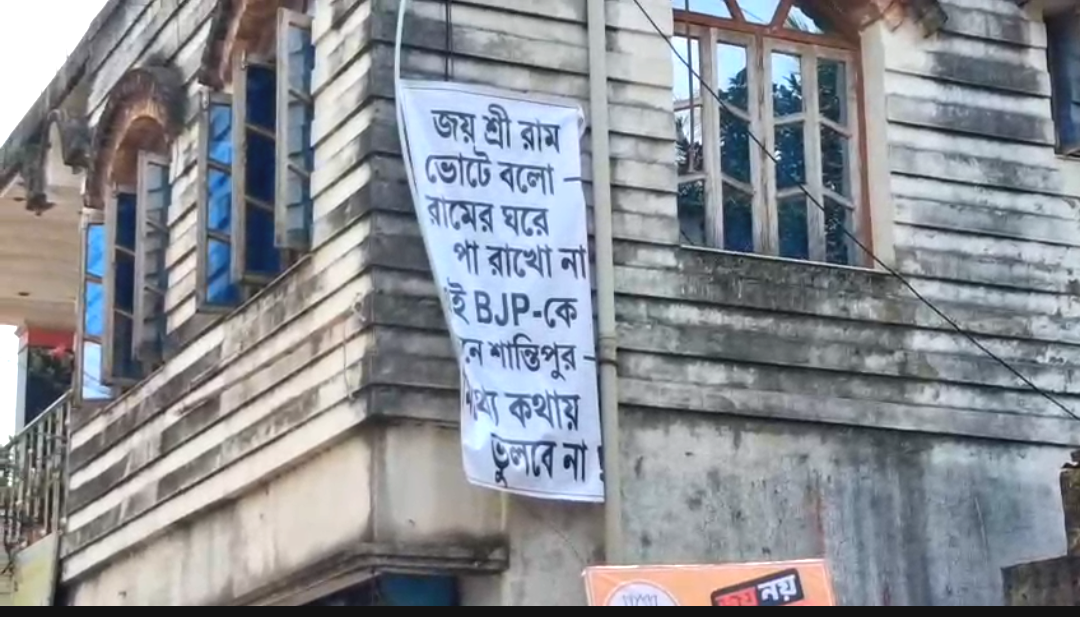 জয় শ্রী রাম
ভোটে বলো –
রামের ঘরে
পা রাখো না
ই BJP-কে
নে শান্তিপুর –
কথায়
ভুলবে না !
নয়